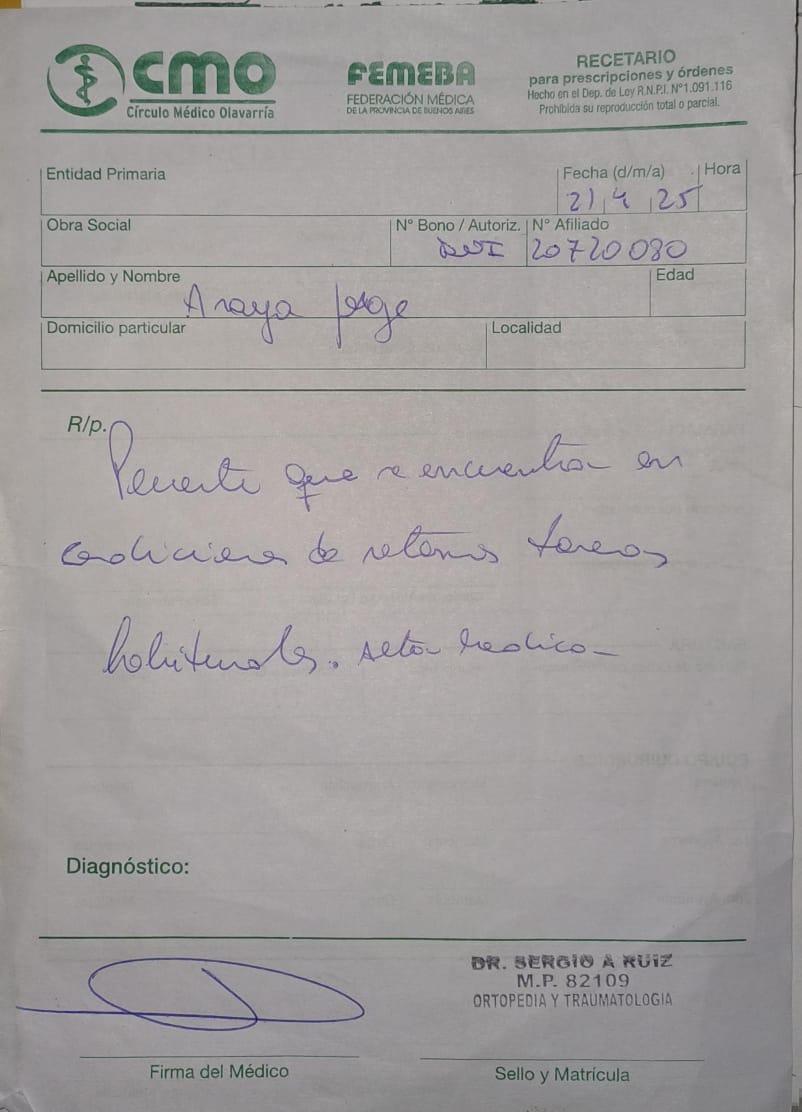 CMO
Círculo Médico Olavarría
FEMEBA
FEDERACIÓN MÉDICA
DE LA PROVINCIA DE BUENOS AIRES
RECETARIO
para prescripciones y órdenes
Hecho en el Dep. de Ley R.N.P.I. Nº1.091.116
Prohibida su reproducción total o parcial.
Entidad Primaria
Fecha (d/m/a)
Hora
21 4 25
Obra Social
Nº Bono / Autoriz.
Nº Afiliado
DNI
20720080
Apellido y Nombre
Edad
Araya Jorge
Domicilio particular
Localidad
R/p.
Paciente que se encuentra en
condiciones de retomar tareas
habituales. Alta médica
Diagnóstico:
DR. SERGIO A RUIZ
M.P. 82109
ORTOPEDIA Y TRAUMATOLOGIA
Firma del Médico
Sello y Matrícula